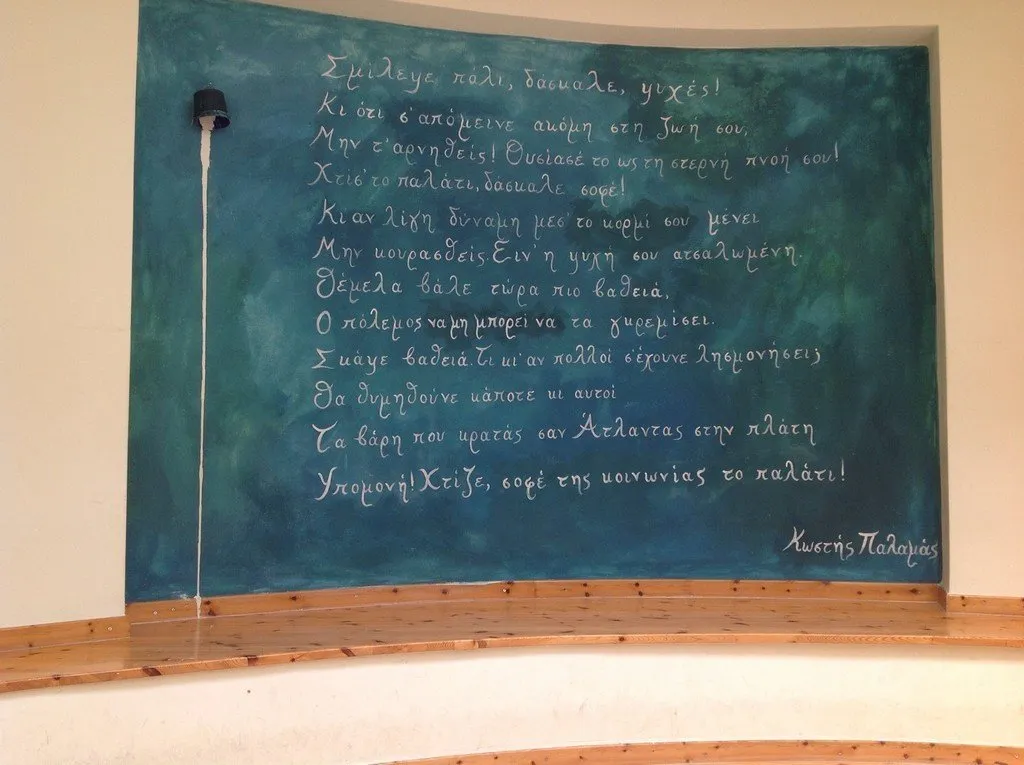 Σμίλεψε πάλι, δάσκαλε, ψυχές!
Κι ότι σ'απόμεινε ακόμη στη ζωή σου,
Μην τ'αρνηθείς! Θυσίασέ το ως τη στερνή πνοή σου!
Χτίσ'το παλάτι, δάσκαλε σοφέ!
Κι αν λίγη δύναμη μεσ'το κορμί σου μένει
Μην κουρασθείς. Είν'η ψυχή σου ατσαλωμένη.
Θέμελα βάλε τώρα πιο βαθειά,
Ο πόλεμος να μη μπορεί να τα γκρεμίσει.
Σκάψε βαθειά. Τι κι'αν πολλοί σ'έχουνε λησμονήσει;
Θα θυμηθούνε κάποτε κι αυτοί
Τα βάρη που κρατάς σαν Άτλαντας στην πλάτη
Υπομονή! Χτίζε, σοφέ της κοινωνίας το παλάτι!
Κωστής Παλαμάς